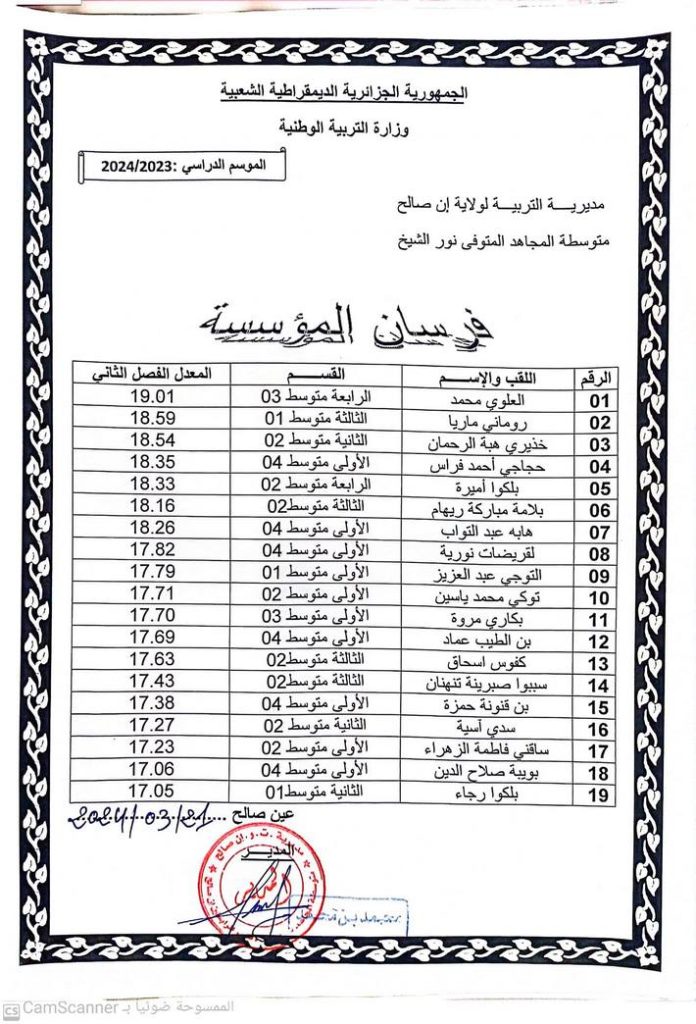 الجمهورية الجزائرية الديمقراطية الشعبية
وزارة التربية الوطنية
الموسم الدراسي :2024/2023
مديريـــة التربيـــة لولاية إن صالح
متوسطة المجاهد المتوفى نور الشيخ
فرسان المؤسسة
الرقم اللقب والإســـم القســـم المعدل الفصل الثاني
01 العلوي محمد الرابعة متوسط 03 19.01
02 روماني ماريا الثالثة متوسط 01 18.59
03 خذيري هبة الرحمان الثانية متوسط 02 18.54
04 حجاجي أحمد فراس الأولى متوسط 04 18.35
05 بلكوا أميرة الرابعة متوسط 02 18.33
06 بلامة مباركة ريهام الثالثة متوسط02 18.16
07 هابه عبد التواب الأولى متوسط 04 18.26
08 لقريضات نورية الأولى متوسط 04 17.82
09 التوجي عبد العزيز الأولى متوسط 01 17.79
10 توكي محمد ياسين الأولى متوسط 02 17.71
11 بكاري مروة الأولى متوسط 03 17.70
12 بن الطيب عماد الأولى متوسط 04 17.69
13 كفوس اسحاق الثالثة متوسط02 17.63
14 سببوا صبرينة تنهنان الثالثة متوسط02 17.43
15 بن قنونة حمزة الأولى متوسط 04 17.38
16 سدي آسية الثانية متوسط 02 17.27
17 ساقني فاطمة الزهراء الأولى متوسط 02 17.23
18 بويبة صلاح الدين الأولى متوسط 04 17.06
19 بلكوا رجاء الثانية متوسط01 17.05
عين صالح 2024/03/21
المديـــر
الممسوحة ضوئيا بـ CamScanner